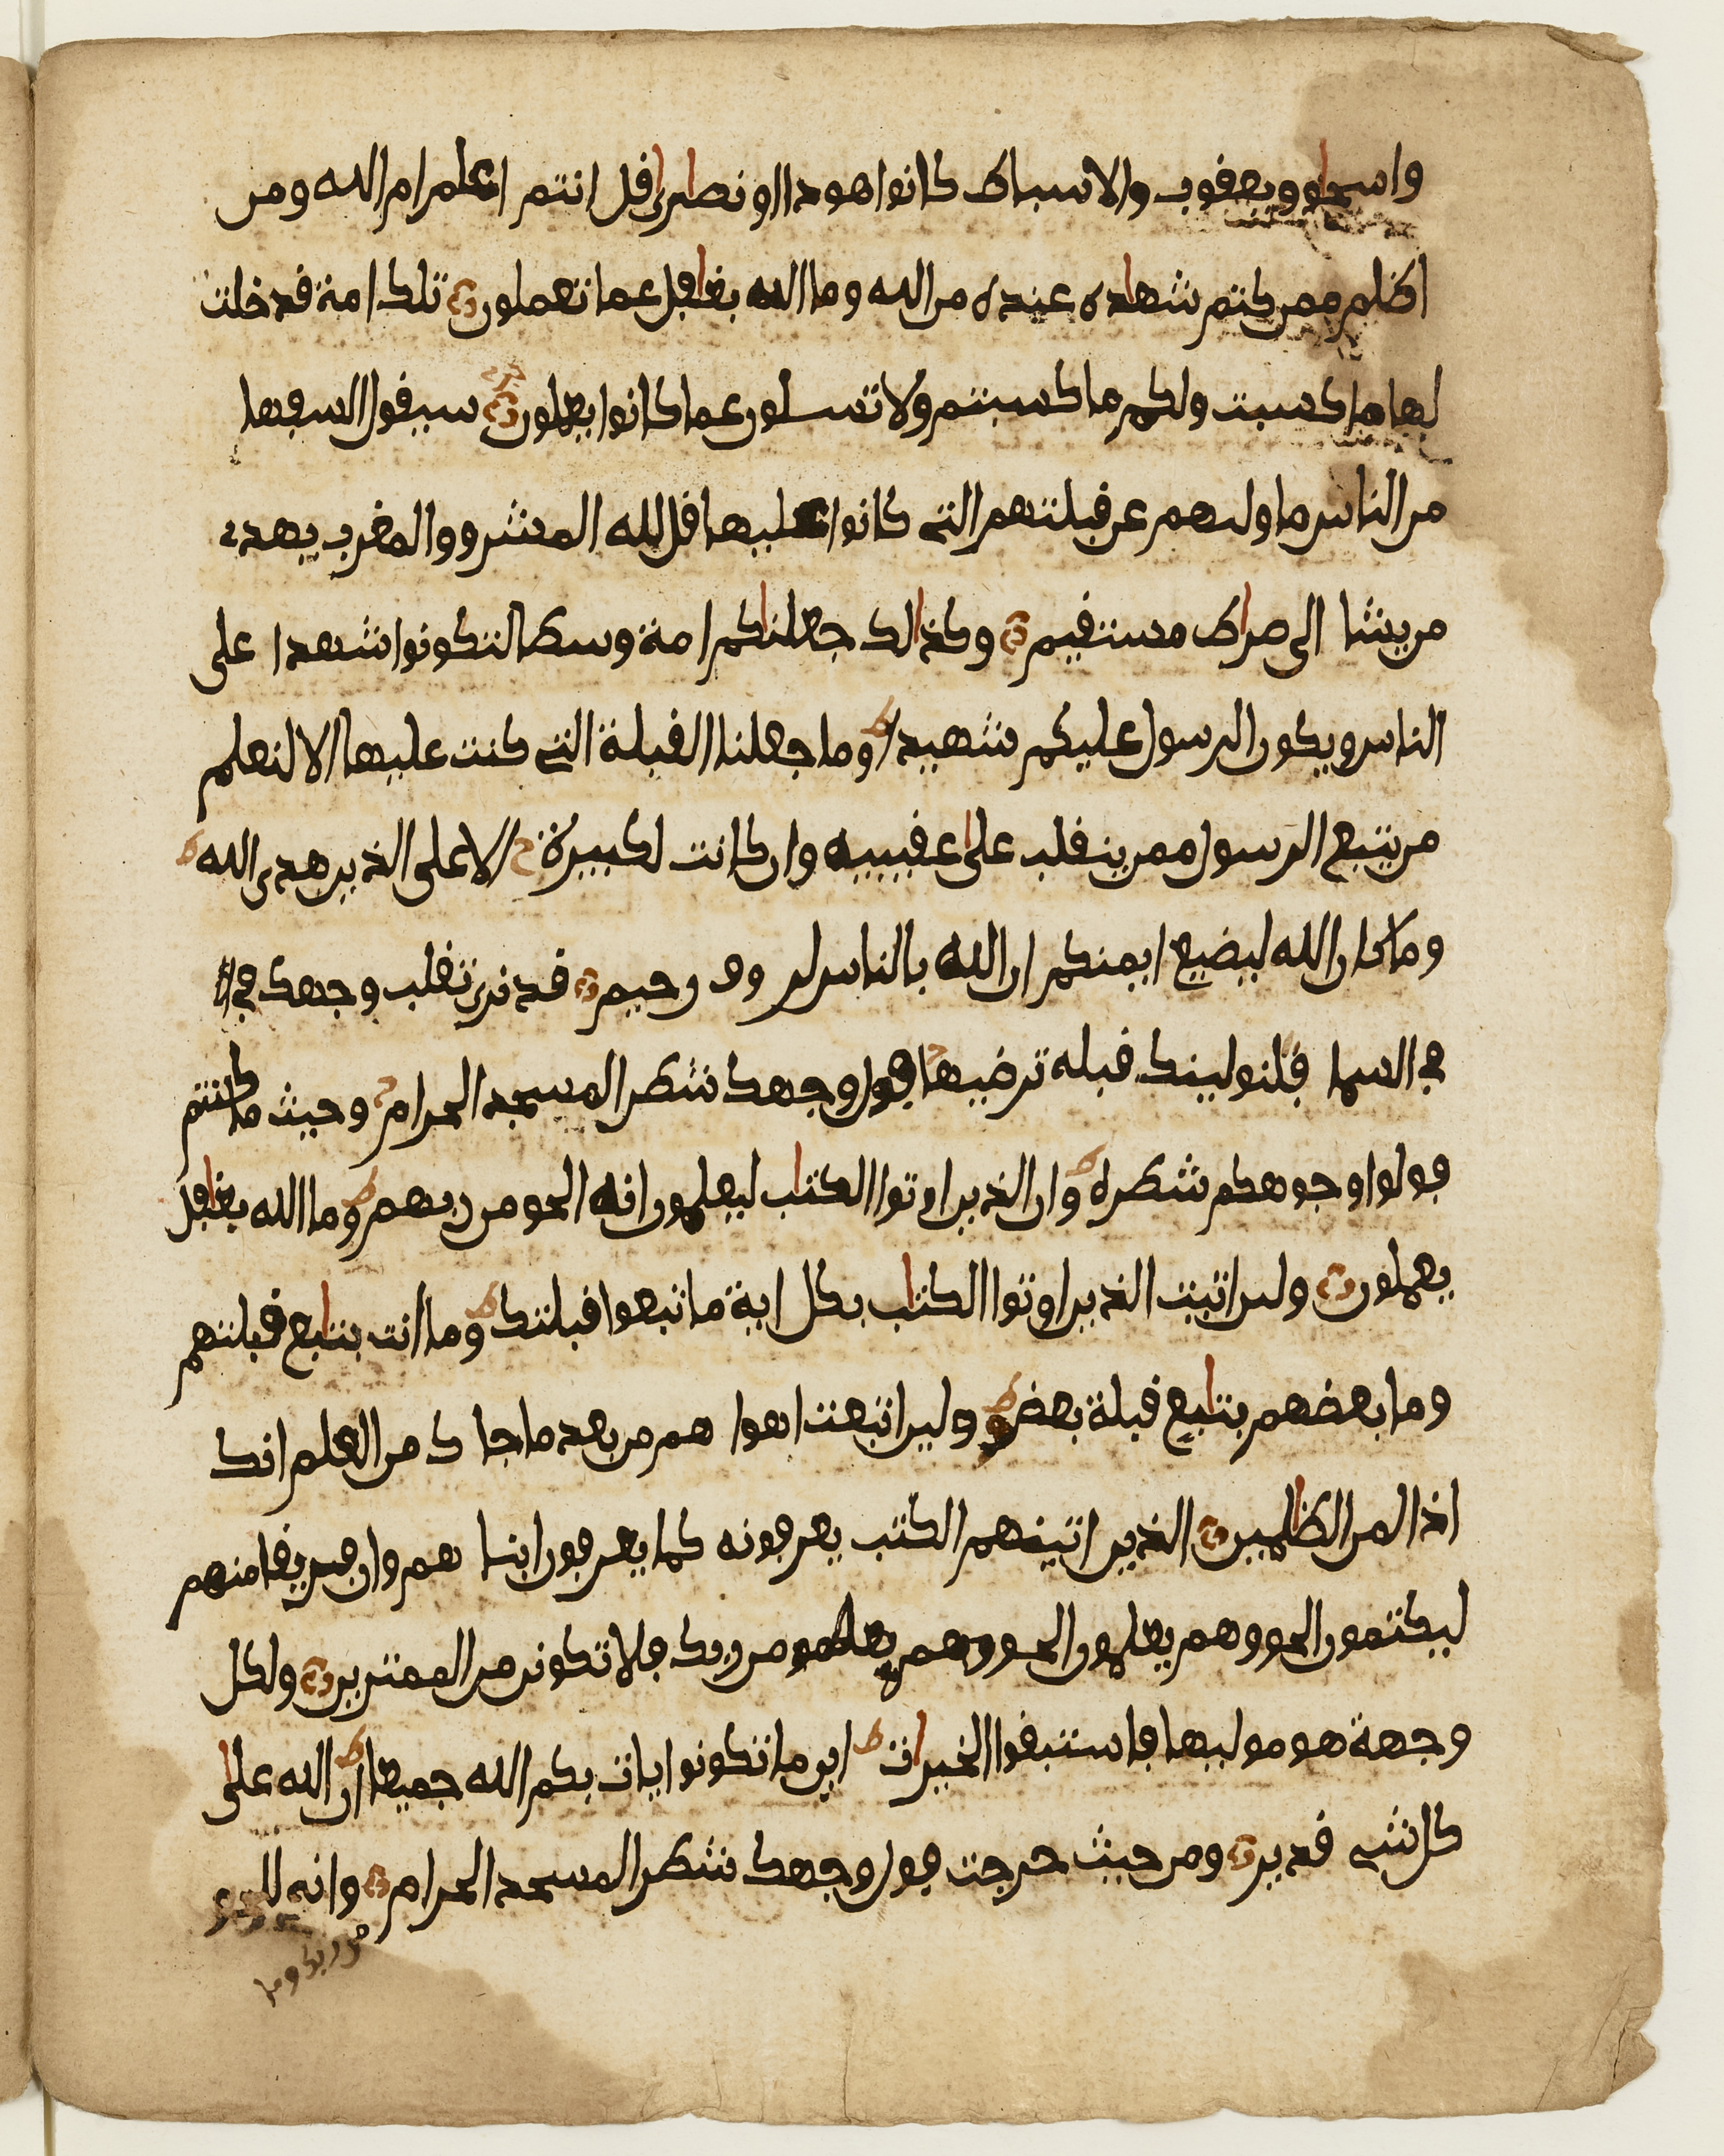 واسحاو ويعقوب والاسباط كانوا هودا او نصارى قل انتم اعلم ام الله ومن
اظلم ممن كتم شهاده عنده من الله وما الله بغافل عما تعملون تلك امة قد خلت
لها ما كسبت ولكم ما كسبتم ولا تسلون عما كانوا يعملون سيقول السفها
من الناس ما وليهم عن قبلتهم التي كانوا عليها قل لله المشرق والمغرب يهدي
من يشا الى صراط مستقيم وكذالك جعلناكم امة وسطا لتكونوا شهدا على
الناس ويكون الرسول عليكم شهيدا ط وما جعلنا القبلة التي كنت عليها الا لنعلم
من يتبع الرسول ممن ينقلب على عقبيه وان كانت لكبيرة ح الا على الذين هدى الله ط
وما كان الله ليضيع ايمنكم ان الله بالناس لر وف رحيم قد نرى تقلب وجهك في
في السما فلنولينك قبله ترضيها فول وجهك شطر المسجد الحرام وحيث ما كنتم
فولوا وجوهكم شطره ط وان الذين اوتوا الكتاب ليعلمون انه الحق من ربهم ط وما الله بغافل
يعملون ولين اتيت الذين اوتوا الكتاب بكل اية ما تبعوا قبلتك ط وما انت بتابع قبلتهم
وما بعضهم بتابع قبلة بعض ط ولين اتبعت اهوا هم من بعد ما جا ك من العلم انك
اذا لمن الظالمين الذين اتينهم الكتب يعرفونه كما يعرفون ابنا هم وان فريقا منهم
ليكتمون الحق وهم يعلمون الحق من ربك فلا تكونن من الممترين ولكل
وجهة هو موليها فاستبقوا الخيرات ط اين ما تكونوا يات بكم الله جميعا ط ان الله على
كل شي قدير ومن حيث خرجت فول وجهك شطر المسجد الحرام وانه للحق
من ربك وما